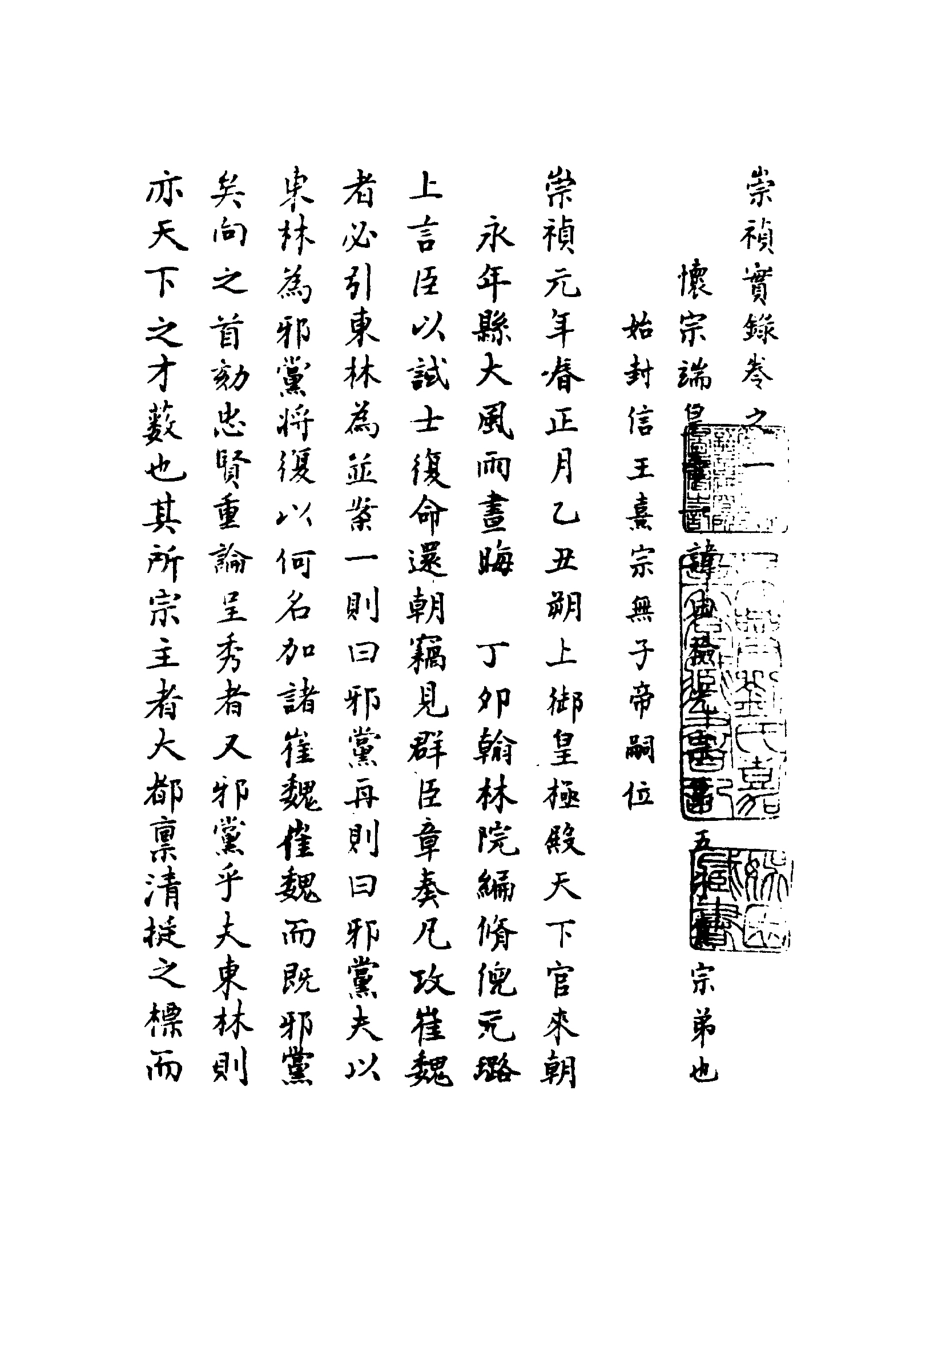 崇禎實錄卷之一
懷宗端皇帝諱由檢光宗第五子熹宗弟也
始封信王熹宗無子帝嗣位
崇禎元年春正月乙丑朔上御皇極殿天下官來朝
永年縣大風雨晝晦 丁卯翰林院編脩倪元璐
上言臣以試士復命還朝竊見群臣章奏凡攻崔魏
者必引東林為並案一則曰邪黨再則曰邪黨夫以
東林為邪黨將復以何名加諸崔魏崔魏而既邪黨
矣向之首劾忠賢重論呈秀者又邪黨乎夫東林則
亦天下之才藪也其所宗主者大都稟清挺之標而